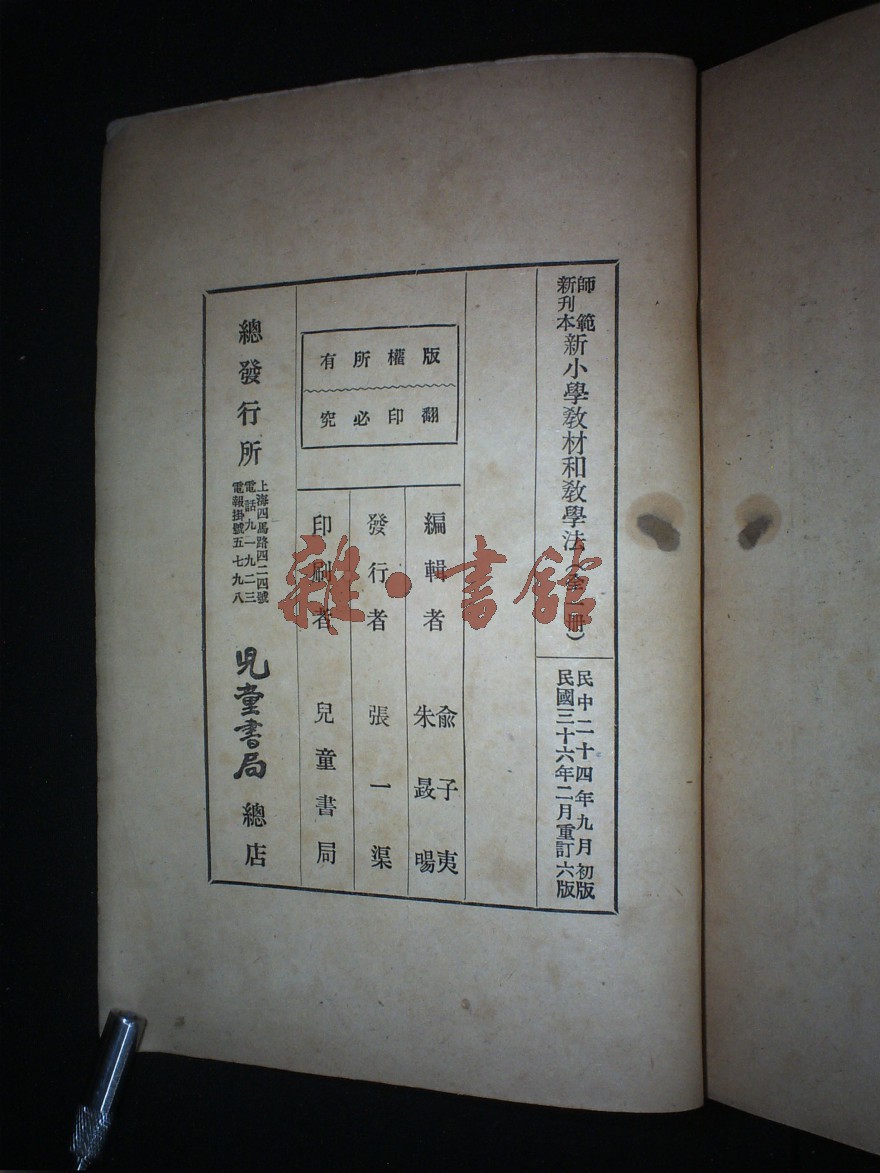 師範
新刊本
新小學教材和教學法(全一冊)
民中二十四年九月初版
民國三十六年二月重訂六版
編輯者 俞子夷
朱晸暘
發行者 張一渠
印刷者 兒童書局
版權所有
翻印必究
總發行所
上海四馬路四二四號
電話九一九二三
電報掛號五七九八
兒童書局 總店
雜·書館